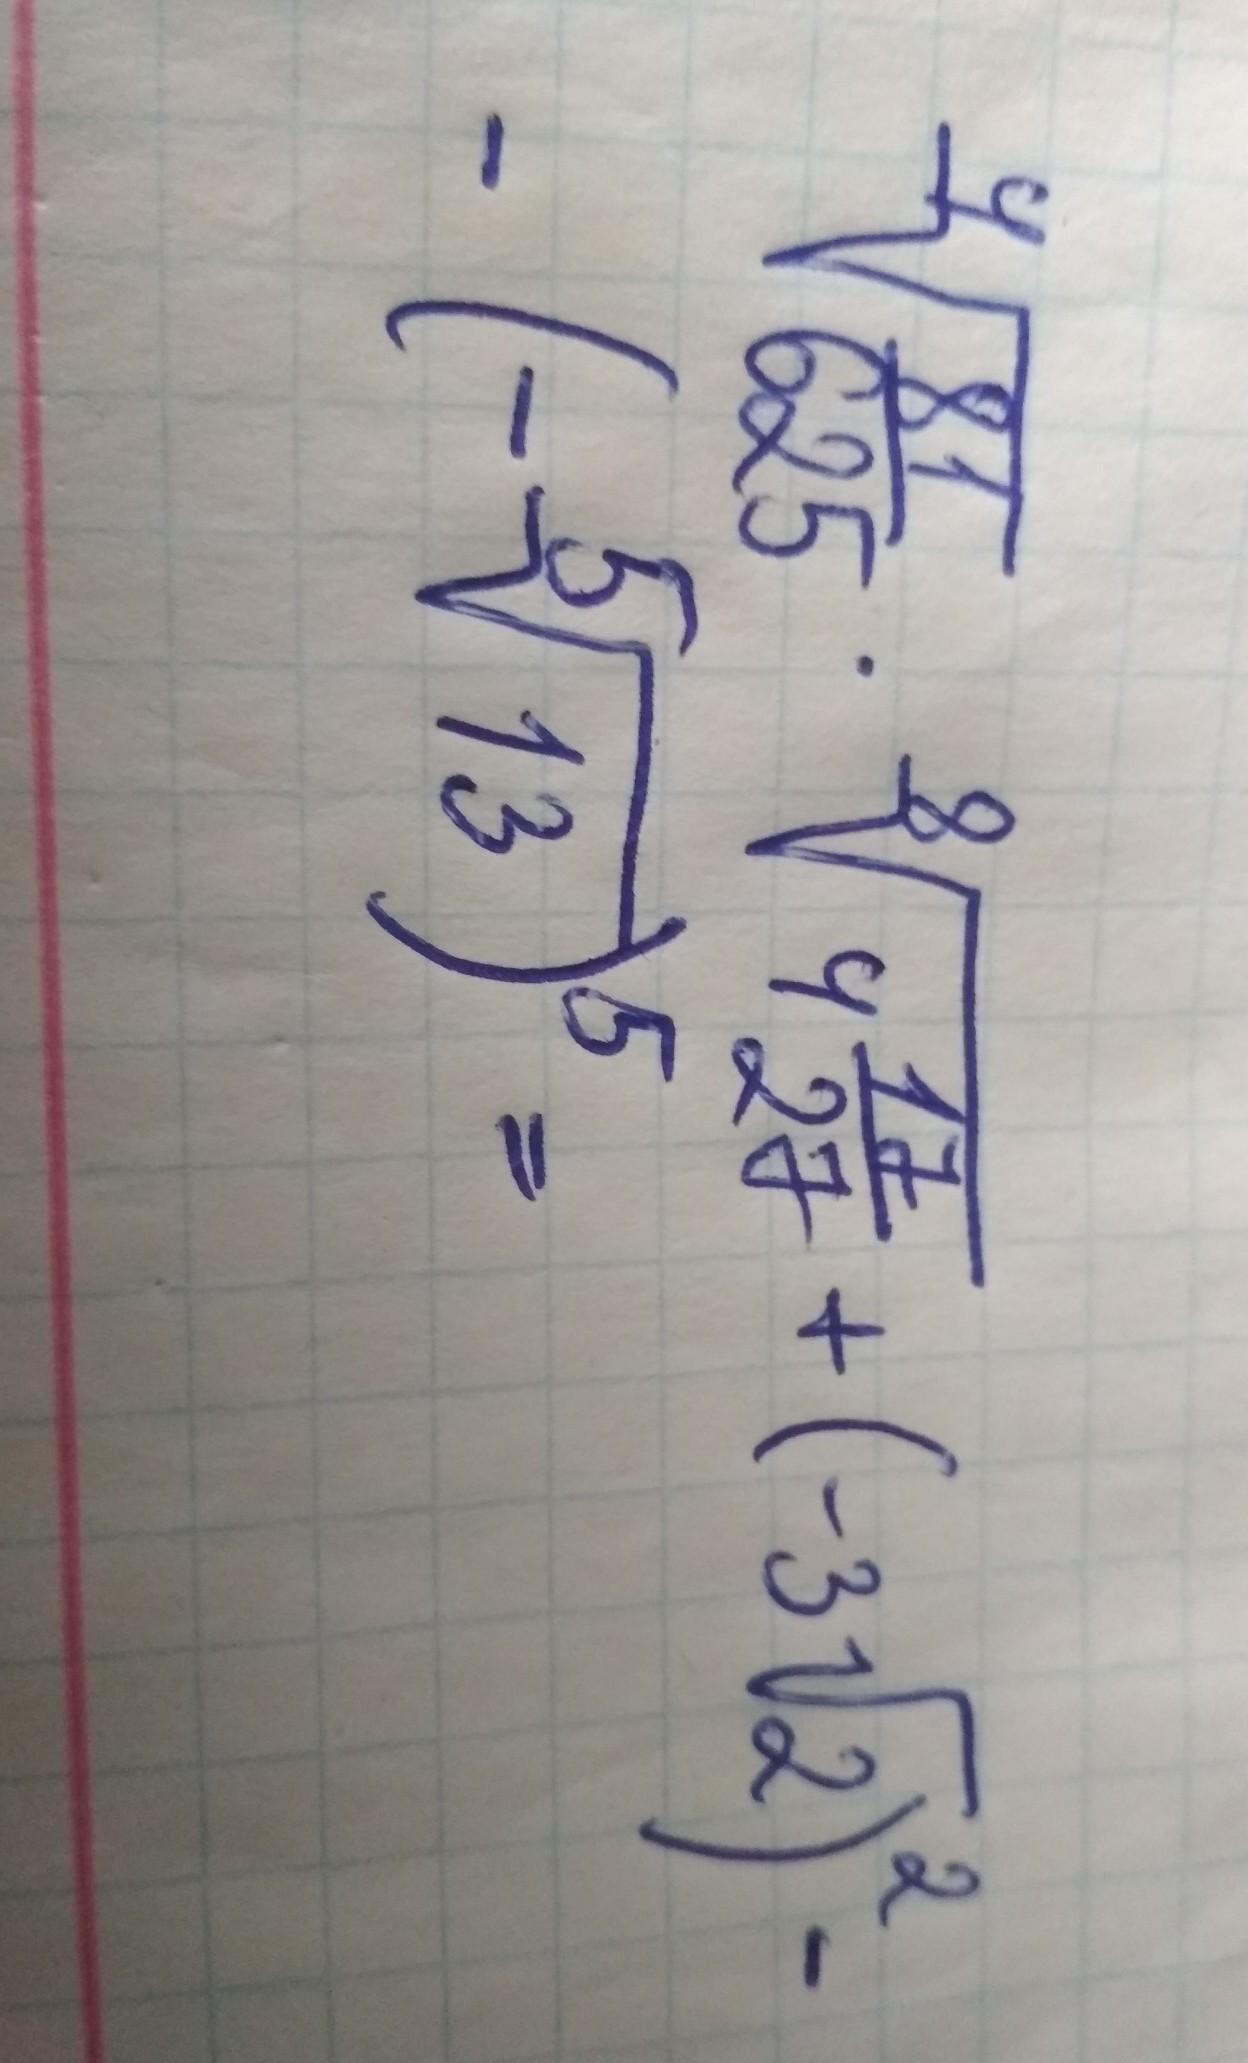 ⁴√(81/625) · ⁸√(4 17/27) + (-3√2)² -
- (-⁵√13)⁵ =